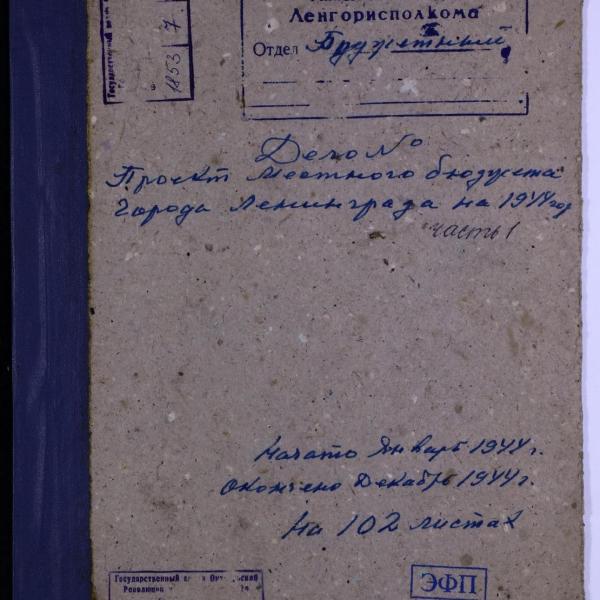 Ленгорисполкома
Отдел Бюджетный
Государственный
1853 7
Дело №
Проект местного бюджета
города Ленинграда на 1944 год
часть 1
Начато Январь 1944 г.
Окончено Декабрь 1944 г.
На 102 листах
Государственный
Революции
ЭФП